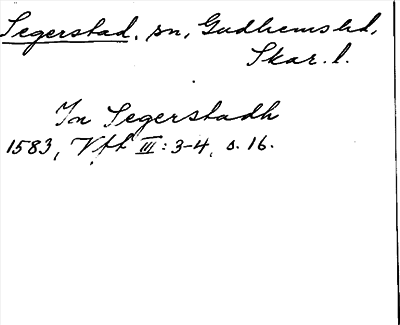 Segerstad, sn, Gudhems hd,
Skar. l.
Jn Segerstadh
1583, Vfft III: 3-4, s. 16.